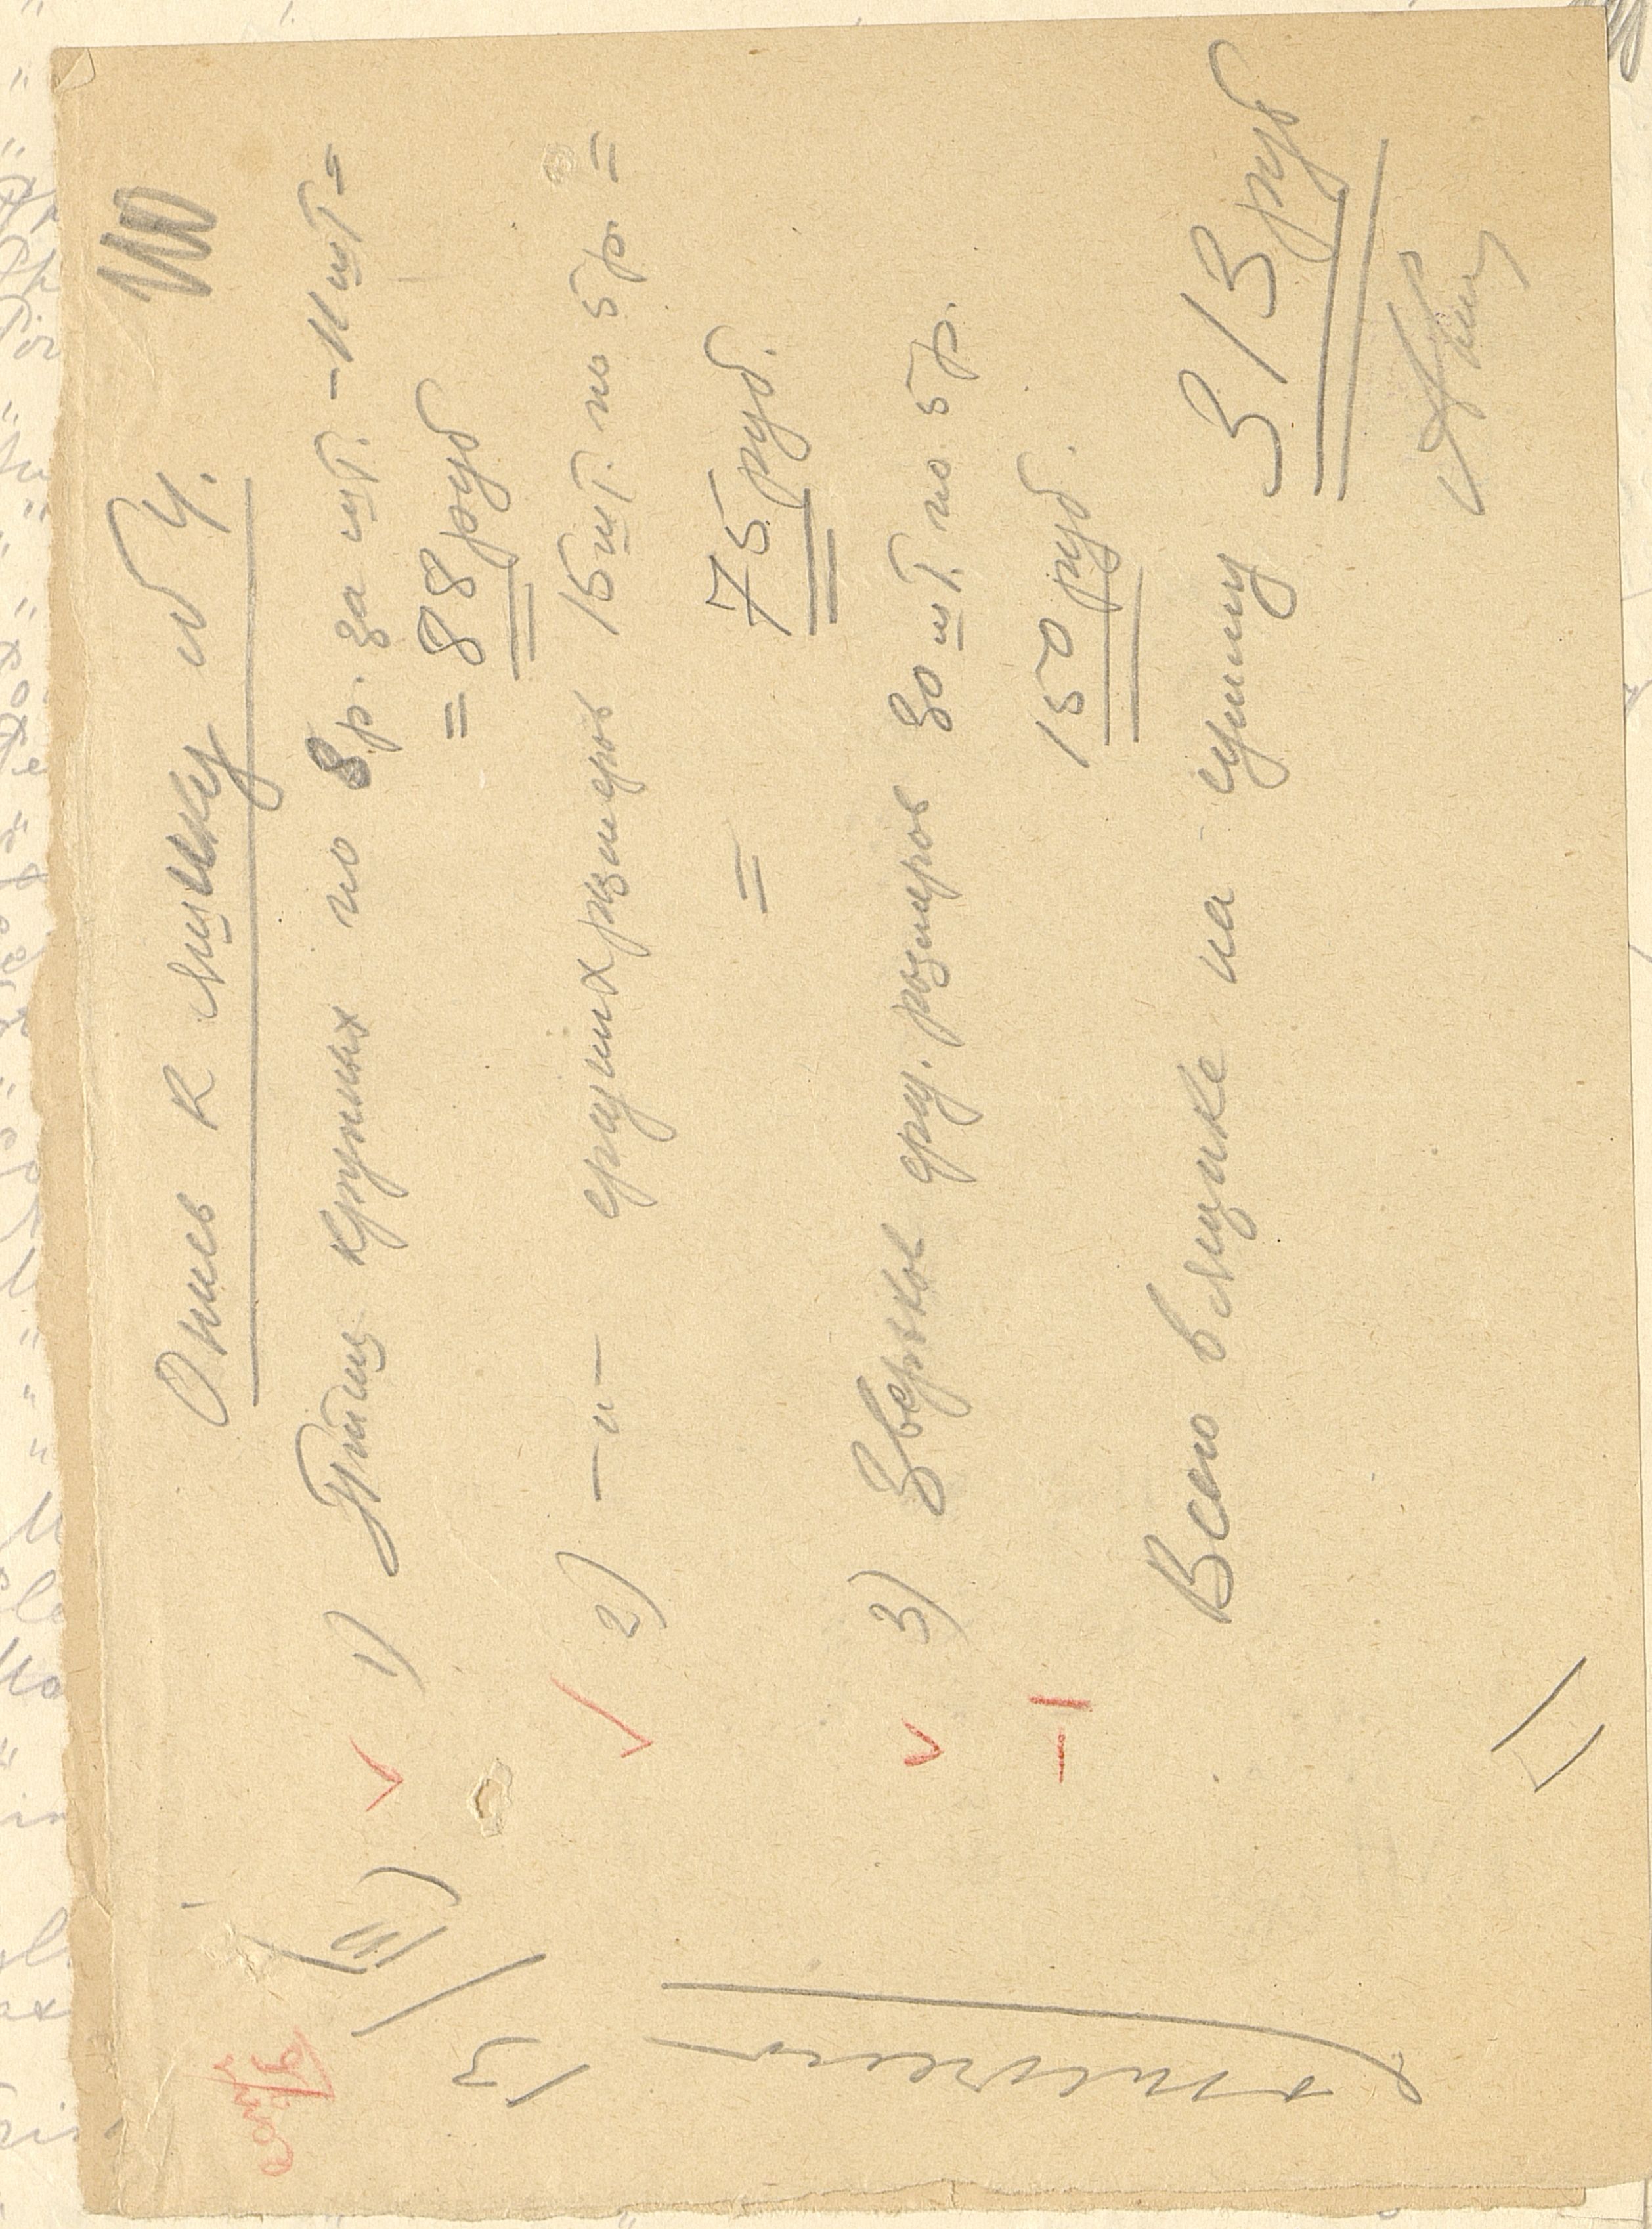 Опись к ящику № 4.
1) Птиц крупных по 8 р. за шт. - 11 шт =
= 88 руб
2) —"— средних размеров 15 шт. по 5 р =
= 75 руб.
3) Зверьков сред. размеров 30 шт. по 5 р.
150 руб.
Всего в ящике на сумму 313 руб
13/(II)